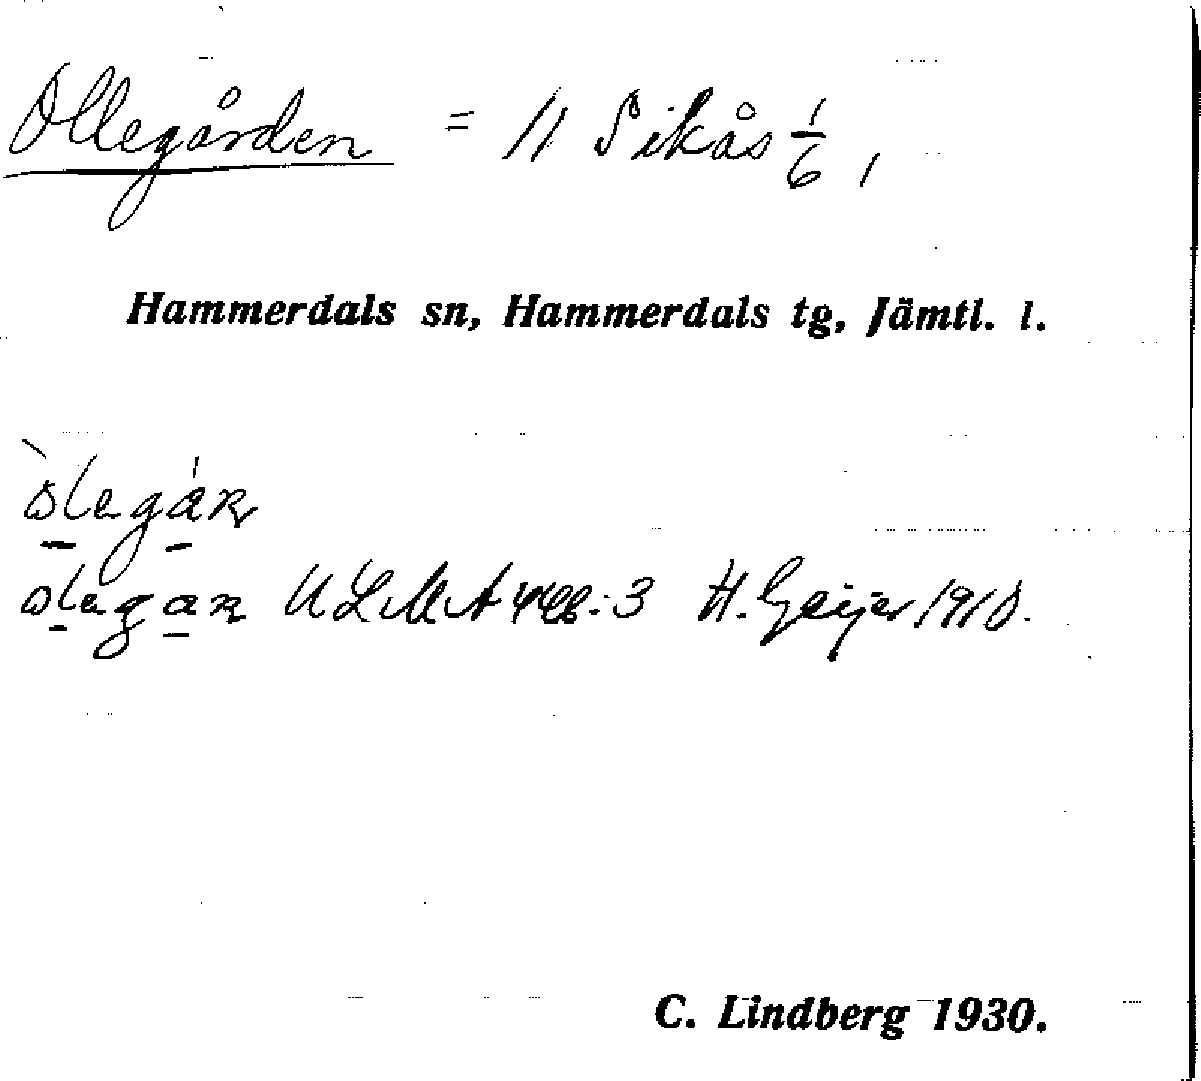 Ollegården = 11 Sikås 1/6 ,
Hammerdals sn, Hammerdals tg, Jämtl. l.
òlegár
olegar ULMA 446:3 H. Geijer 1918.
C. Lindberg 1930.